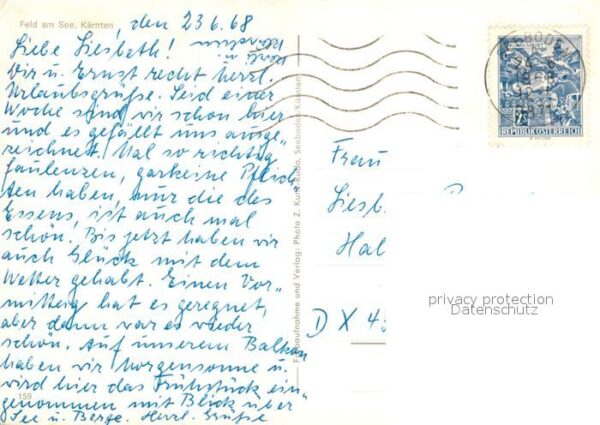 Feld am See, Kärnten
, den 23.6.68
Liebe Liesbeth!
Dir u. Ernst recht herzl.
Urlaubsgrüße. Seid einer
Woche sind wir schon hier
und es gefällt uns ausge-
zeichnet. Mal so richtig
faulenzen, garkeine Pflich
ten haben, nur die des
Essens, ist auch mal
schön. Bis jetzt haben wir
auch Glück mit dem
Wetter gehabt. Einen Vor-
mittag hat es geregnet,
aber dann war es wieder
schön. Auf unserem Balkon
haben wir Morgensonne u.
wird hier das Frühstück ein-
genommen mit Blick über
See u. Berge. Herzl. Grüße
159
Farbaufnahme und Verlag: Photo Z. Kuno Ruda, Seeboden/Kärnten
REPUBLIK ÖSTERREICH
Frau
Liesb
Hal
D X 43
privacy protection
Datenschutz